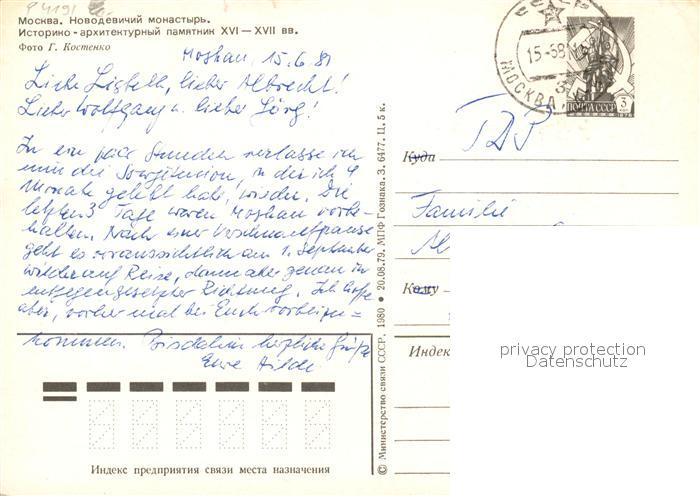 P 4191
Москва. Новодевичий монастырь.
Историко-архитектурный памятник XVI—XVII вв.
Фото Г. Костенко
Moskau, 15.6.81
Liebe Lisbeth, lieber Albrecht!
Lieber Wolfgang u. lieber Jörg!
In ein paar Stunden verlasse ich
nun die Sowjetunion, in der ich 4
Monate gelebt habe, wieder. Die
letzten 3 Tage waren Moskau vorbe-
halten. Nach einer Verschnaufpause
geht es voraussichtlich am 1. September
wieder auf Reise, dann aber genau in
entgegengesetzter Richtung. Ich hoffe
aber, vorher mal bei Euch vorbeizu=
kommen. Bis dahin herzliche Grüße
Eure Hilde
Индекс предприятия связи места назначения
© Министерство связи СССР, 1980 • 20.08.79. МПФ Гознака. З. 6477. Ц. 5 к.
СССР
15-6 81
МОСКВА
ПОЧТА СССР 3
Куда
Familie
Кому
Индекс
privacy protection
Datenschutz